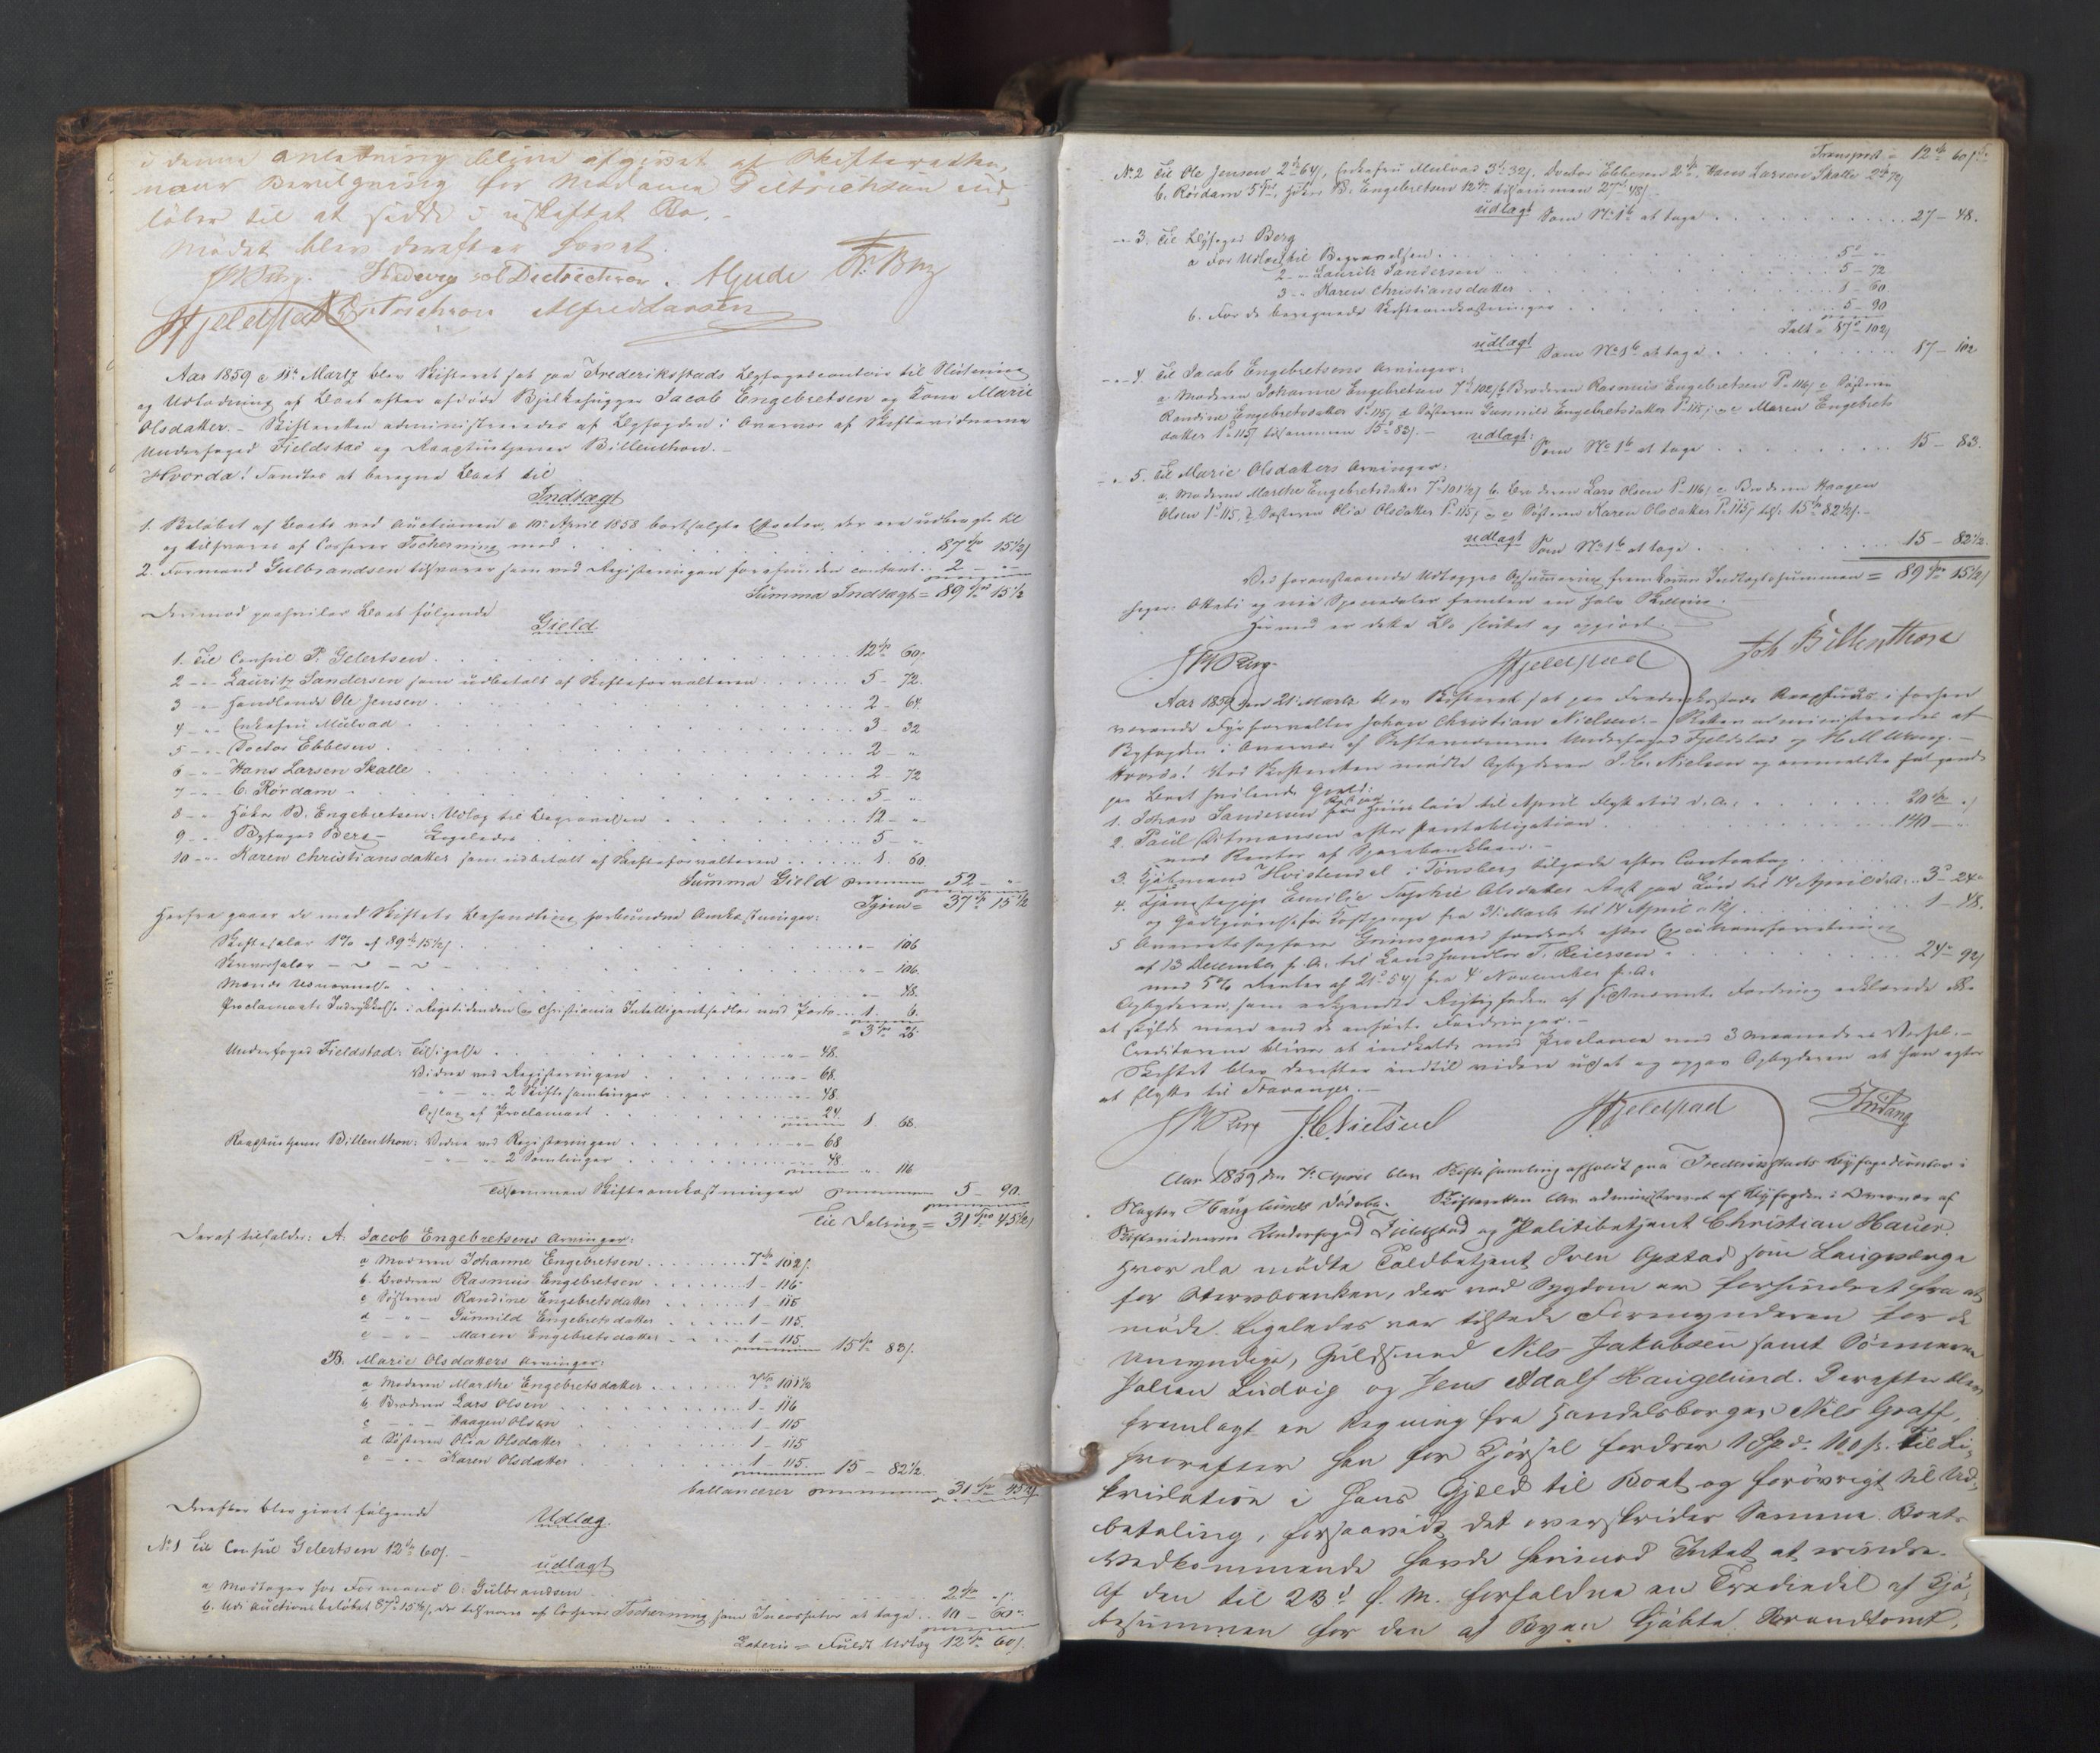 i denne anledning blive afgivet at Skifteretten,
naar Bevilgning for Madame Diltrichson ud
löber til at sidde i uskiftet Bo. -
Mödet blev derefter hævet.
Hedevig Diedrichson. A Gude Fr. Berg
Fjeldstad Alfred Larsen
Aar 1859 d 11te Martz blev Skifteret sat paa Frederiksstads Byfogedcontoir til Slutning
og Udlodning af Boet efter afdöde Bjelkehugger Jacob Engebretsen og Kone Marie
Olsdatter. - Skifteretten administreredes af Byfogden i Overvær af Skiftevidnerne
Underfoged Fieldstad og Raadstuetjener Billenthon. -
Hvorda! Fandtes at beregne Boet til
Indtægt
1. Beløbet af Boets ved Auctionen d 10de April 1858 bortsolgte Effecter, der ere udbragte til
og tilsvares af Casserer Tscherning med . . . 87 Spd 15½ s
2. Formand Gulbrandsen tilsvarer som ved Registeringen forefunden contant . . 2 - "
Summa Indtægt = 89 Spd 15½
Derimod paahviler Boet følgende
Gield.
1. Til Consul P. Gelertsen . . . 12 Spd 60 s
2 - " Lauritz Sandersen som udbetalt af Skifteforvalteren . . . 5 - 72.
3 - " Handlende Ole Jensen . . . 2 - 64
4 - " Enkefru Mulvad . . . 3 - 32
5 - " Doctor Ebbesen . . . 2 - "
6 - " Hans Larsen Skalle . . . 2 - 72
7 - " C. Rördam . . . 5 - "
8 - " Höker B. Engebretsen: Udlæg til Begravelsen . . . 12 - "
9 - " Byfoged Berg - Ligeledes . . . 5 - "
10 - " Karen Christiansdatter som udbetalt af Skifteforvalteren . . . 1. 60.
Summa Gield 52 - "
Igien = 37 Spd 15½
Herfra gaaer de med Skiftets Behandling forbundne Omkostninger:
Skiftesalær 1% af 89 Spd 15½ s . . . " - 106
Skriversalær - " - " - . . . " - 106.
. . . " - 48.
Proclamaets Indrykkelse i Rigstidenden og Christiania Intelligentsedler med Porto . . 1. 6.
= 3 Spd 26
Underfoged Fieldstad: Tilsigelse . . . " - 48.
Vidne ved Registeringen . . . " - 68.
- " - " 2 Skiftesamlinger . . . " - 48.
Opslag af Proclamaet . . . " - 24. 1. 68.
Raadstuetjener Billenthon: Vidne ved Registeringen . . . " - 68
- " - " 2 Samlinger . . . 48. " - 116
Tilsammen Skifteomkostninger 5 - 90.
Til Deling = 31 Spd 45½ s
Deraf tilfalder: A. Jacob Engebretsens Arvinger:
a Moderen Johanne Engebretsen . . . 7 Spd 102 s
b. Broderen Rasmus Engebretsen . . . 1 - 116
c Søsteren Randine Engebretsdatter . . . 1 - 115
d - " - Gunnild Engebretsdatter . . . 1 - 115.
e - " - Maren Engebretsdatter . . . 1 - 115. 15 Spd 83 s
B. Marie Olsdatters Arvinger:
a Moderen Marthe Engebretsdatter . . . 7 Spd 101½
b Broderen Lars Olsen . . . 1 - 116
c - " - Haagen Olsen . . . 1 - 115
d Søsteren Olea Olsdatter . . . 1 - 115
e - " - Karen Olsdatter . . . 1 - 115. 15 - 82½.
ballancerer 31 Spd 45½ s
Derefter blev givet følgende Udlæg.
No 1 Til Consul Gelertsen 12 Spd 60 s. -
udlagt
a. Modtager hos Formand O. Gulbrandsen . . . 2 Spd - s
b. Udi Auctionsbeløbet 87 Spd 15½ s, der tilsvares af Casserer Tscherning som Incassator at tage . . 10 - 60
Lateris = Fuldt Udlæg 12 Spd 60 s.
Transport = 12 Spd 60 s
No. 2 Til Ole Jensen 2 Spd 64 s, Enkefru Mulvad 3 Spd 32 s. Doctor Ebbesen 2 Spd, Hans Larsen Skalle 2 Spd 72 s
C. Rördam 5 Spd, Höker B. Engebretsen 12 Spd tilsammen 27 Spd 48 s. -
udlagt Som No 1 b at tage . . . 27 - 48.
- " 3. Til Byfoged Berg
a For Udlæg til Begravelsen . . . 5 - "
2 - " Lauritz Sandersen . . . 5 - 72
3 - " Karen Christiansdatter . . . 1 - 60.
b. For de beregnede Skifteomkostninger . . . 5 - 90
Ialt = 87 102 s
udlagt Som No 1 b at tage . . . 17 - 102
- " 4. Til Jacob Engebretsens Arvinger:
a. Moderen Johanne Engebretsen 7 Spd 102 s b Broderen Rasmus Engebretsen 1 - 116 s c Søsteren
Randine Engebretsdatter 1 - 115 s, d Søsteren Gunnild Engebretsdatter 1 - 115 s e Maren Engebrets
datter 1 - 115 s tilsammen 15 - 83 s. - udlagt: Som No 1 b at tage . . . 15 - 83.
- " 5. Til Marie Olsdatters Arvinger:
a. Moderen Marthe Engebretsdatter 7 - 101½ s b. Broderen Lars Olsen 1 - 116 s c Broderen Haagen
Olsen 1 - 115, d Søsteren Olea Olsdatter 1 - 115 s, e Søsteren Karen Olsdatter 1 - 115 s tils. 15 Spd 82½ s. -
udlagt Som No 1 b at tage . . . 15 - 82½.
Ved foranstaaende Udlægges Opsummering fremkommer Indtægtssummen = 89 Spd 15½ s
siger: Otteti og nie Speciedaler femten en halv Skilling.
Hermed er dette Bo sluttet og opgjort. -
Berg. Fjeldstad Joh Billenthon
Aar 1859 den 21de Martz blev Skifteret sat paa Frederiksstads Raadhuus i forhen
værende Fyrforvalter Johan Christian Nielsen. - Retten administreredes af
Byfogden i Overvær af Skiftevidnerne Underfoged Fjeldstad og H. M. Wang. -
Hvorda! Ved Skifteretten mødte Opbyderen J. C. Nielsen og anmeldte følgende
paa Boet hvilende Gjeld:
1. Johan Sandersen for Huusleie til April Flyttetid d. A. . . . 20 Spd - s
2. Paul Ditmansen efter Pantobligation . . . 140 - "
med Renter af Sparebanklaan. -
3. Kjöbmand Hvistendal i Tønsberg tilgode efter Contrabog . . .
4. Tjenestepige Emilie Sophie Olsdatter Rest paa Løn til 14 April d. A. . . 3 - 24
og Godtgjørelse for Kostpenge fra 31 Marts til 14 April . . . 1 - 48.
5 Overretssagfører Grimsgaard fordrede efter Executionsforretning
af 13 December f. A. til Landhandler T. Reiersen . . . 24 - 92 s
med 5% Renter af 21 - 54 s fra 4 November f. A.
Opbyderen, som erkjendte Rigtigheden af sidstnævnte Fordring erklærede ikke
at skylde mere end de anførte Fordringer. -
Creditorene bliver at indkalde med Proclama med 3 Maaneders Varsel. -
Skiftet blev derefter indtil videre udsat og opgav Opbyderen at han agter
at flytte til Stavanger. -
Berg J. C. Nielsen Fjeldstad Wang
Aar 1859 den 7de April blev Skiftesamling afholdt paa Frederiksstads Byfogedcontor i
Slagter Hauglunds Dödsbo. Skifteretten blev administreret af Byfogden i Overvær af
Skiftevidnerne Underfoged Fjeldstad og Politibetjent Christian Hauer.
Hvor da mödte Toldbetjent Iver Opstad som Laugværge
for Stervboenken, der ved Sygdom er forhindret fra at
møde. Ligeledes var tilstede Formynderen for de
Umyndige, Guldsmed Nils Jakobsen samt Sönnerne
Julian Ludvig og Jens Adolf Haugelund. Derefter blev
fremlagt en Regning fra Handelsborger Nils Graff,
hvorefter han for Kjörsel fordrer 1 Spd. 100 s. til Li-
kvidation i hans Gjæld til Boet og forövrigt til Ud-
betaling, forsaavidt det overskrider Samme. Boets
Vedkommende havde herimod Intet at erindre.
Af den til 23d d. M. forfaldne en Trediedel af Kjö-
besummen for den af Byen kjöbte Brandtomt,